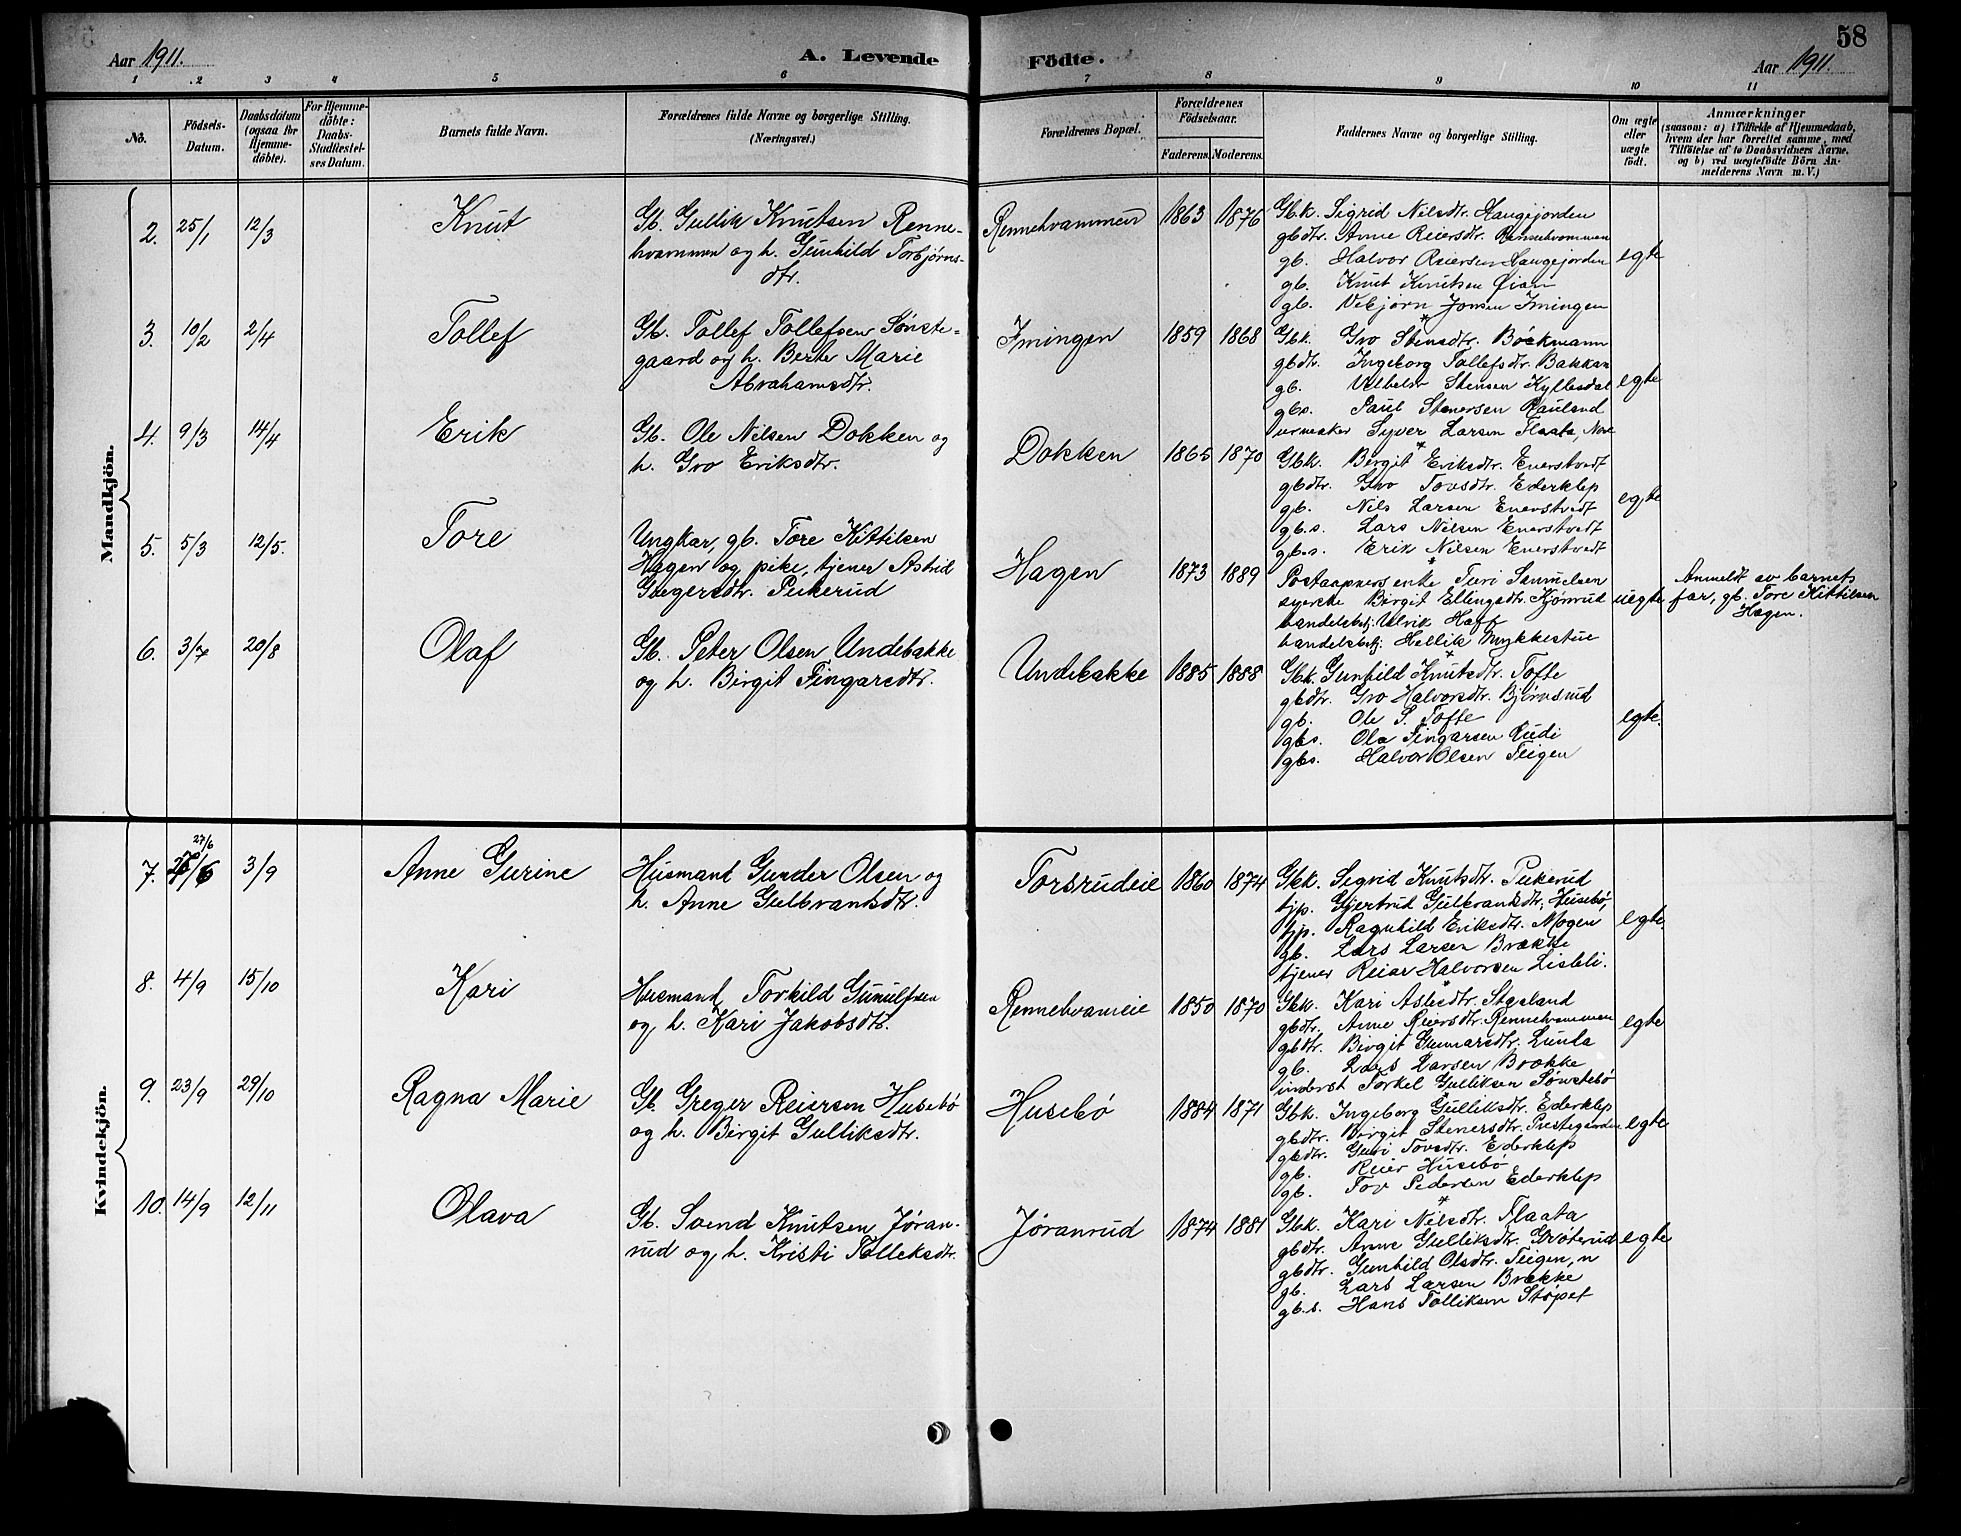 58
Aar 1911.
A. Levende
Födte.
Aar 1911.
1 2 3 4 5 6 7 8 9 10 11
No.
Födsels-
Datum.
Daabsdatum
(ogsaa for
Hjemme-
döbte).
For Hjemme-
döbte:
Daabs-
Stadfæstel-
ses Datum.
Barnets fulde Navn.
Forældrenes fulde Navne og borgerlige Stilling.
(Næringsvei.)
Forældrenes Bopæl.
Forældrenes
Födselsaar.
Faderens.
Moderens.
Faddernes Navne og borgerlige Stilling.
Om ægte
eller
uægte
födt.
Anmærkninger
(saasom: a) i Tilfælde af Hjemmedaab,
hvem der har forrettet samme, med
Tilföielse af to Daabsvidners Navne,
og b) ved uægtefödte Börn An-
melderens Navn m. V.)
Mandkjön.
2. 25/1 12/3 Knut
Gb. Gullik Knutsen Renne-
hvammen og h. Gunhild Torbjørns-
dtr.
Rennehvammen 1863 1876
Gbk. Sigrid Nilsdtr. Haugejorden
gbdtr. Anne Reiersdtr. Rennehvammen
gb. Halvor Reiersen Haugejorden
gb. Knut Knutsen Øian
gb. Vebjørn Jonsen Imingen
egte
3. 10/2 2/4 Tollef
Gb. Tollef Tollefsen Sönste-
gaard og h. Berte Marie
Abrahamsdtr.
Imingen 1859 1868
Gbk. Gro Stensdtr. Böckmann
gbdtr. Ingeborg Tollefsdtr. Bakkan
gb. Stensen Kyllesdal
gbs. Paul Stenersen Rauland
urmaker Syver Larsen Flaata, Nore
egte
4. 9/3 14/4 Erik
Gb. Ole Nilsen Dokken og
h. Gro Eriksdtr.
Dokken 1865 1870
Gbk. Birgit Eriksdtr. Enerstvedt
gbdtr. Gro Tovsdtr. Ederklep
gb. Nils Larsen Enerstvedt
gb.s. Lars Nilsen Enerstvedt
gb.s. Erik Nilsen Enerstvedt
egte
5. 5/3 12/5. Tore
Ungkar, gb. Tore Kittilsen
Hagen og pike, tjener Astrid
Gregersdtr. Pukerud
Hagen 1873 1889
Postaapners enke Turi Samuelsen
syerske Birgit Ellingsdtr. Hjönrud
handelsbetj. Ulrik Haff
handelsbetj. Hellik Mykkestue
uegte
Anmeldt av barnets
far, gb. Tore Kittilsen
Hagen.
6. 3/7 20/8 Olaf
Gb. Peter Olsen Undebakke
og h. Birgit Fingarsdtr.
Undebakke 1885 1888
Gbk. Gunhild Knutsdtr. Tofte
gbdtr. Gro Halvorsdtr. Björnsrud
gb. Ole S. Tofte
gbs. Ola Fingarsen Rudi
gbs. Halvor Olsen Teigen
egte.
Kvindekjön.
27/6
7. 3/9 Anne Gurine
Husmand Gunder Olsen og
h. Anne Gulbrandsdtr.
Torsrudeie 1860 1874
Gbk. Sigrid Knutsdtr. Pukerud
tjp. Gjertrud Gulbrandsdtr. Husebö,
tjp. Ragnhild Eriksdtr. Mogen
gb. Lars Larsen Brække
tjener Reiar Halvorsen Lisleli.
egte.
8. 4/9 15/10 Kari
Husmand Torkild Gunulfsen
og h. Kari Jakobsdtr.
Rennehvameie 1850 1870
Gbk. Kari Aslesdtr. Stasland
gbdtr. Anne Reiersdtr. Rennehvammen
gbdtr. Birgit Gunnarsdtr. Lunta
gb. Lars Larsen Brække
inderst Torkel Gulliksen Sönstebö
egte
9. 23/9 29/10 Ragna Marie
Gb. Greger Reiersen Husebö
og h. Birgit Gulliksdtr.
Husebö 1884 1871
Gbk. Ingeborg Gulliksdtr. Ederklep
gbdtr. Birgit Stenersdtr. Prestegarden
gbdtr. Guri Tovsdtr. Ederklep
gb. Reier Husebö
gb. Tov Pedersen Ederklep
egte
10. 14/9 12/11 Olava
Gb. Svend Knutsen Jøran-
rud og h. Kristi Tolleksdtr.
Jøranrud 1874 1881
Gbk. Kari Nilsdtr. Flaata
gbdtr. Anne Gulliksdtr. Gröterud
gbdtr. Gunhild Olsdtr. Teigen, n
gb. Lars Larsen Brække
gb.s. Hans Tolliksen Støpet
egte